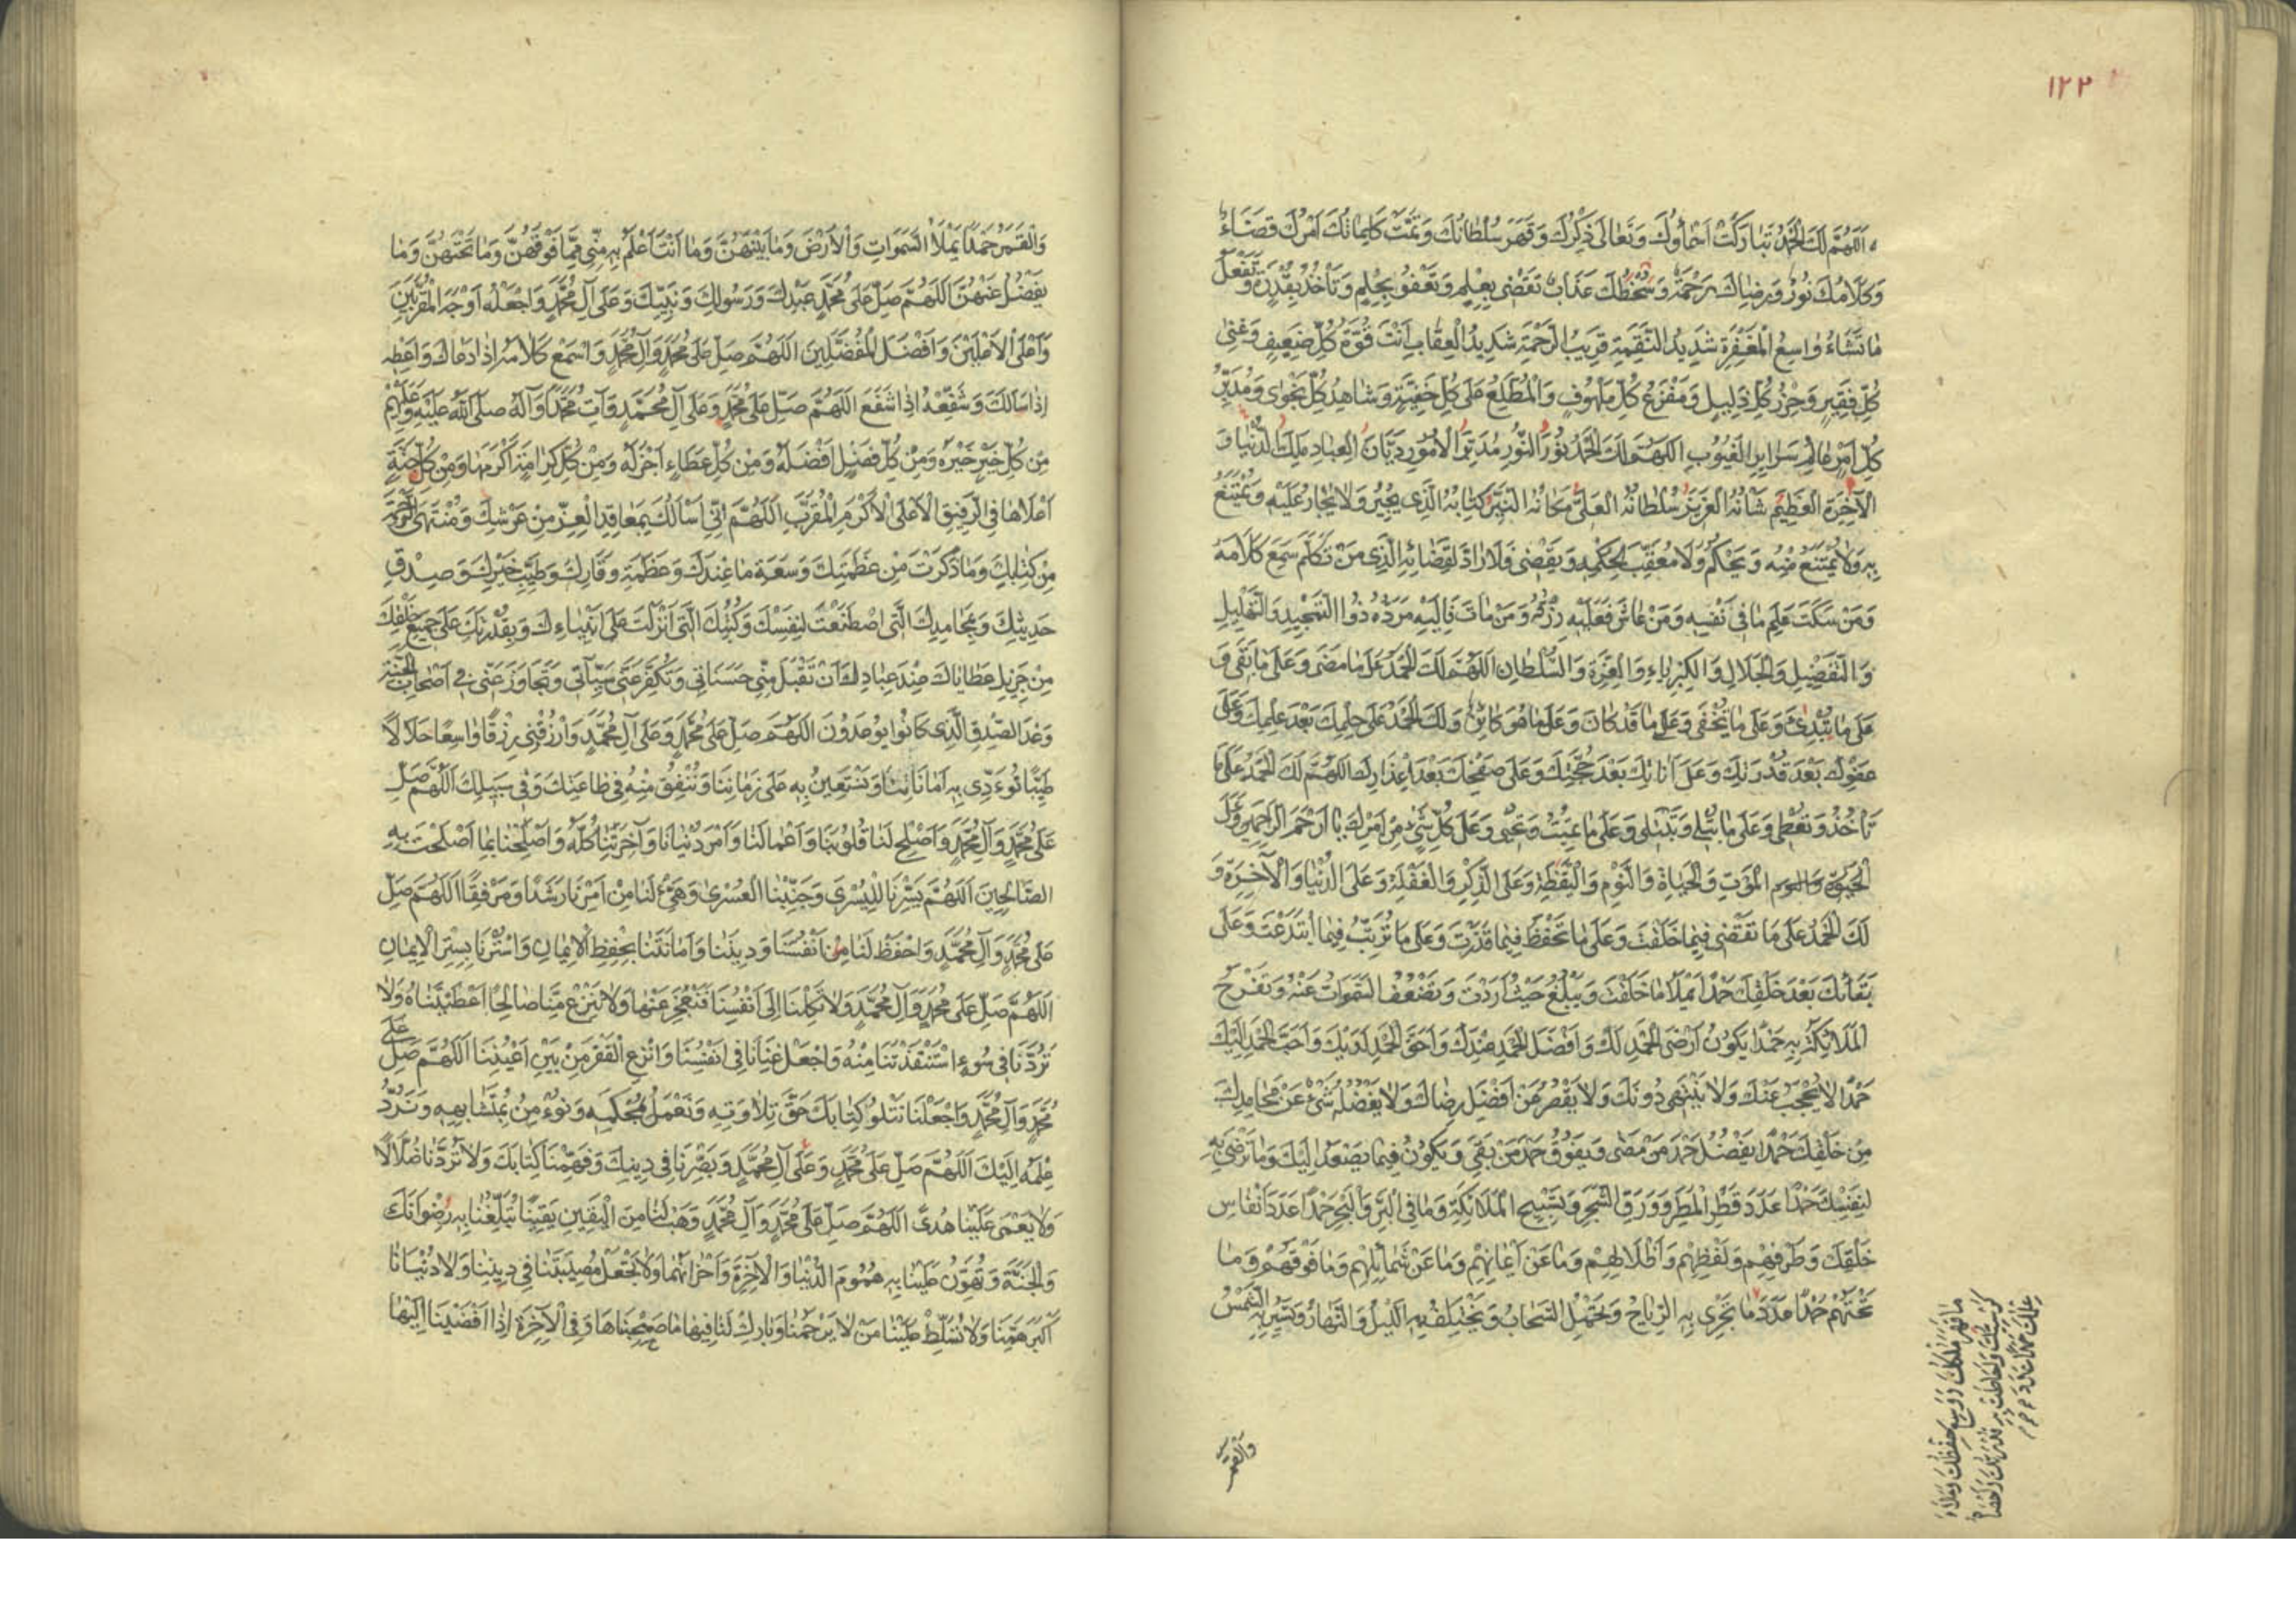 ١٢٢
اَللّٰهُمَّ لَكَ الْحَمْدُ تَبارَكَتْ اَسْماؤُكَ وَتَعالى ذِكْرُكَ وَقَهَرَ سُلْطانُكَ وَتَمَّتْ كَلِماتُكَ اَمْرُكَ قَضاءٌ
وَكَلامُكَ نُورٌ وَرِضاكَ رَحْمَةٌ وَسَخَطُكَ عَذابٌ تَقْضى بِعِلْمٍ وَتَعْفُو بِحِلْمٍ وَتَاْخُذُ بِقُدْرَةٍ وَتَفْعَلُ
ما تَشاءُ واسِعُ الْمَغْفِرَةِ شَديدُ النَّقِمَةِ قَريبُ الرَّحْمَةِ شَديدُ الْعِقابِ اَنْتَ قُوَّةُ كُلِّ ضَعيفٍ وَغِنى
كُلِّ فَقيرٍ وَحِرْزُ كُلِّ ذَليلٍ وَمَفْزَعُ كُلِّ مَلْهُوفٍ وَالْمُطَّلِعُ عَلى كُلِّ خَفِيَّةٍ وَشاهِدُ كُلِّ نَجْوى وَمُدَبِّرُ
كُلِّ اَمْرٍ عالِمُ سَرايِرِ الْغُيُوبِ اَللّٰهُمَّ لَكَ الْحَمْدُ نُورَ النُّورِ مُدَبِّرَ الْاُمُورِ دَيّانَ الْعِبادِ مَلِكَ الدُّنْيا وَ
الْآخِرَةِ الْعَظيمَ شَاْنُهُ الْعَزيزَ سُلْطانُهُ الْعَلِيَّ مَكانُهُ النَّيِّرَ كِتابُهُ الَّذى يُجيرُ وَلا يُجارُ عَلَيْهِ وَيَمْتَنِعُ
بِهِ وَلا يُمْتَنَعُ مِنْهُ وَيَحْكُمُ وَلا مُعَقِّبَ لِحُكْمِهِ وَيَقْضى فَلا رادَّ لِقَضائِهِ الَّذى مَنْ تَكَلَّمَ سَمِعَ كَلامَهُ
وَمَنْ سَكَتَ عَلِمَ ما فى نَفْسِهِ وَمَنْ عاشَ فَعَلَيْهِ رِزْقُهُ وَمَنْ ماتَ فَاِلَيْهِ مَرَدُّهُ ذُوا التَّمْجيدِ وَالتَّهْليلِ
وَالتَّفْضيلِ وَالْجَلالِ وَالْكِبْرِياءِ وَالْعِزَّةِ وَالسُّلْطانِ اَللّٰهُمَّ لَكَ الْحَمْدُ عَلى ما مَضى وَعَلى ما بَقى وَ
عَلى ما تُبْدِئُ وَعَلى ما تُخْفى وَعَلى ما قَدْ كانَ وَعَلى ما هُوَ كائِنٌ وَلَكَ الْحَمْدُ عَلى حِلْمِكَ بَعْدَ عِلْمِكَ وَعَلى
عَفْوِكَ بَعْدَ قُدْرَتِكَ وَعَلى اَناتِكَ بَعْدَ حُجَّتِكَ وَعَلى صَفْحِكَ بَعْدَ اِعْذارِكَ اَللّٰهُمَّ لَكَ الْحَمْدُ عَلى ما
تَاْخُذُ وَتُعْطى وَعَلى ما تُبْلى وَتَبْتَلى وَعَلى ما تُميتُ وَتُحْيى وَعَلى كُلِّ شَيْءٍ مِنْ اَمْرِكَ يا اَرْحَمَ الرّاحِمينَ وَعَلَى
الْمَوْتِ وَالْحَياةِ وَالنَّوْمِ وَالْيَقْظَةِ وَعَلَى الذِّكْرِ وَالْغَفْلَةِ وَعَلَى الدُّنْيا وَالْآخِرَةِ وَ
لَكَ الْحَمْدُ عَلى ما تَقْضى فيما خَلَقْتَ وَعَلى ما تَحْفَظُ فيما قَدَّرْتَ وَعَلى ما تُرَتِّبُ فيما ابْتَدَعْتَ وَعَلى
بَقائِكَ بَعْدَ خَلْقِكَ حَمْدًا يَمْلَأُ ما خَلَقْتَ وَيَبْلُغُ حَيْثُ اَرَدْتَ وَتَضْعُفُ السَّمَواتُ عَنْهُ وَتَفْرَحُ
الْمَلائِكَةُ بِهِ حَمْدًا يَكُونُ اَرْضَى الْحَمْدِ لَكَ وَاَفْضَلَ الْحَمْدِ عِنْدَكَ وَاَحَقَّ الْحَمْدِ لَدَيْكَ وَاَحَبَّ الْحَمْدِ اِلَيْكَ
حَمْدًا لا يُحْجَبُ عَنْكَ وَلا يَنْتَهى دُونَكَ وَلا يَقْصُرُ عَنْ اَفْضَلِ رِضاكَ وَلا يَفْضُلُهُ شَيْءٌ عَنْ مَحامِدِكَ
مِنْ خَلْقِكَ حَمْدًا يَفْضُلُ حَمْدَ مَنْ مَضى وَيَفُوقُ حَمْدَ مَنْ بَقِيَ وَيَكُونُ فيما يَصْعَدُ اِلَيْكَ وَما تَرْضى بِهِ
لِنَفْسِكَ حَمْدًا عَدَدَ قَطْرِ الْمَطَرِ وَوَرَقِ الشَّجَرِ وَتَسْبيحِ الْمَلائِكَةِ وَما فِى الْبَرِّ وَالْبَحْرِ حَمْدًا عَدَدَ اَنْفاسِ
خَلْقِكَ وَطَرْفِهِمْ وَلَفْظِهِمْ وَاَظْلالِهِمْ وَما عَنْ اَيْمانِهِمْ وَما عَنْ شَمائِلِهِمْ وَما فَوْقَهُمْ وَما
تَحْتَهُمْ حَمْدًا عَدَدَ ما تَجْرى بِهِ الرِّياحُ وَتَحْمِلُ السَّحابُ وَيَخْتَلِفُ بِهِ اللَّيْلُ وَالنَّهارُ وَتَسيرُ بِهِ الشَّمْسُ
ما قَهَرَ مُلْكُكَ وَوَسِعَ حِفْظُكَ وَمَلَأَ
كُرْسِيُّكَ وَاَحاطَتْ بِهِ قُدْرَتُكَ وَاَحْصاهُ
عِلْمُكَ حَمْدًا
وَالْقَمَرُ
وَالْقَمَرُ حَمْدًا يَمْلَأُ السَّمَواتِ وَالْاَرْضَ وَما بَيْنَهُنَّ وَما اَنْتَ اَعْلَمُ بِهِ مِنّى مِمّا فَوْقَهُنَّ وَما تَحْتَهُنَّ وَما
يَفْضُلُ عَنْهُنَّ اَللّٰهُمَّ صَلِّ عَلى مُحَمَّدٍ عَبْدِكَ وَرَسُولِكَ وَنَبِيِّكَ وَعَلى آلِ مُحَمَّدٍ وَاجْعَلْهُ اَوْجَهَ الْمُقَرَّبينَ
وَاَعْلَى الْاَعْلَيْنَ وَاَفْضَلَ الْمُفَضَّلينَ اَللّٰهُمَّ صَلِّ عَلى مُحَمَّدٍ وَآلِ مُحَمَّدٍ وَاسْمَعْ كَلامَهُ اِذا دَعاكَ وَاَعْطِهِ
اِذا سَاَلَكَ وَشَفِّعْهُ اِذا شَفَعَ اَللّٰهُمَّ صَلِّ عَلى مُحَمَّدٍ وَعَلى آلِ مُحَمَّدٍ وَآتِ مُحَمَّدًا وَآلَهُ صَلَّى اللهُ عَلَيْهِ وَعَلَيْهِمْ
مِنْ كُلِّ خَيْرٍ خَيْرَهُ وَمِنْ كُلِّ فَضْلٍ اَفْضَلَهُ وَمِنْ كُلِّ عَطاءٍ اَجْزَلَهُ وَمِنْ كُلِّ كَرامَةٍ اَكْرَمَها وَمِنْ كُلِّ جَنَّةٍ
اَعْلاها فِى الرَّفيقِ الْاَعْلَى الْاَكْرَمِ الْمُقَرَّبِ اَللّٰهُمَّ اِنّى اَسْاَلُكَ بِمَعاقِدِ الْعِزِّ مِنْ عَرْشِكَ وَمُنْتَهَى الرَّحْمَةِ
مِنْ كِتابِكَ وَما ذَكَرْتَ مِنْ عَظَمَتِكَ وَسَعَةِ ما عِنْدَكَ وَعَظَمَةِ وَقارِكَ وَطيبِ خَيْرِكَ وَصِدْقِ
حَديثِكَ وَبِمَحامِدِكَ الَّتى اصْطَنَعْتَ لِنَفْسِكَ وَكُتُبِكَ الَّتى اَنْزَلْتَ عَلى اَنْبِياءِكَ وَبِقُدْرَتِكَ عَلى جَميعِ خَلْقِكَ
مِنْ جَزيلِ عَطاياكَ عِنْدَ عِبادِكَ اَنْ تَقْبَلَ مِنّى حَسَناتى وَتُكَفِّرَ عَنّى سَيِّئاتى وَتَجاوَزَ عَنّى فى اَصْحابِ الْجَنَّةِ
وَعْدَ الصِّدْقِ الَّذى كانُوا يُوعَدُونَ اَللّٰهُمَّ صَلِّ عَلى مُحَمَّدٍ وَعَلى آلِ مُحَمَّدٍ وَارْزُقْنى رِزْقًا واسِعًا حَلالًا
طَيِّبًا نُوءَدّى بِهِ اَماناتِنا وَنَسْتَعينُ بِهِ عَلى زَمانِنا وَنُنْفِقُ مِنْهُ فى طاعَتِكَ وَفى سَبيلِكَ اَللّٰهُمَّ صَلِّ
عَلى مُحَمَّدٍ وَآلِ مُحَمَّدٍ وَاَصْلِحْ لَنا قُلُوبَنا وَاَعْمالَنا وَاَمْرَ دُنْيانا وَآخِرَتِنا كُلَّهُ وَاَصْلِحْنا بِما اَصْلَحْتَ بِهِ
الصّالِحينَ اَللّٰهُمَّ يَسِّرْنا لِلْيُسْرى وَجَنِّبْنَا الْعُسْرى وَهَيِّئْ لَنا مِنْ اَمْرِنا رَشَدًا وَمَرْفِقًا اَللّٰهُمَّ صَلِّ
عَلى مُحَمَّدٍ وَآلِ مُحَمَّدٍ وَاحْفَظْ لَنا اَنْفُسَنا وَدينَنا وَاَمانَتَنا بِحِفْظِ الْايمانِ وَاسْتُرْنا بِسِتْرِ الْايمانِ
اَللّٰهُمَّ صَلِّ عَلى مُحَمَّدٍ وَآلِ مُحَمَّدٍ وَلا تَكِلْنا اِلى اَنْفُسِنا فَنَعْجِزَ عَنْها وَلا تَنْزِعْ مِنّا صالِحًا اَعْطَيْتَناهُ وَلا
تَرُدَّنا فى سُوءٍ اسْتَنْقَذْتَنا مِنْهُ وَاجْعَلْ غِنانا فى اَنْفُسِنا وَانْزِعِ الْفَقْرَ مِنْ بَيْنِ اَعْيُنِنا اَللّٰهُمَّ صَلِّ عَلى
مُحَمَّدٍ وَآلِ مُحَمَّدٍ وَاجْعَلْنا نَتْلُو كِتابَكَ حَقَّ تِلاوَتِهِ وَنَعْمَلُ بِمُحْكَمِهِ وَنُوءْمِنُ بِمُتَشابِهِهِ وَنَرُدُّ
عِلْمَهُ اِلَيْكَ اَللّٰهُمَّ صَلِّ عَلى مُحَمَّدٍ وَعَلى آلِ مُحَمَّدٍ وَبَصِّرْنا فى دينِكَ وَفَهِّمْنا كِتابَكَ وَلا تَرُدَّنا ضُلّالًا
وَلا يَعْمى عَلَيْنا هُدىً اَللّٰهُمَّ صَلِّ عَلى مُحَمَّدٍ وَآلِ مُحَمَّدٍ وَهَبْ لَنا مِنَ الْيَقينِ يَقينًا تُبَلِّغُنا بِهِ رِضْوانَكَ
وَالْجَنَّةَ وَتُهَوِّنُ عَلَيْنا بِهِ هُمُومَ الدُّنْيا وَالْآخِرَةِ وَاَحْزانَهُما وَلا تَجْعَلْ مُصيبَتَنا فى دينِنا وَلا دُنْيانا
اَكْبَرَ هَمِّنا وَلا تُسَلِّطْ عَلَيْنا مَنْ لا يَرْحَمُنا وَبارِكْ لَنا فيها ما صَحِبْناها وَفِى الْآخِرَةِ اِذا اَفْضَيْنا اِلَيْها